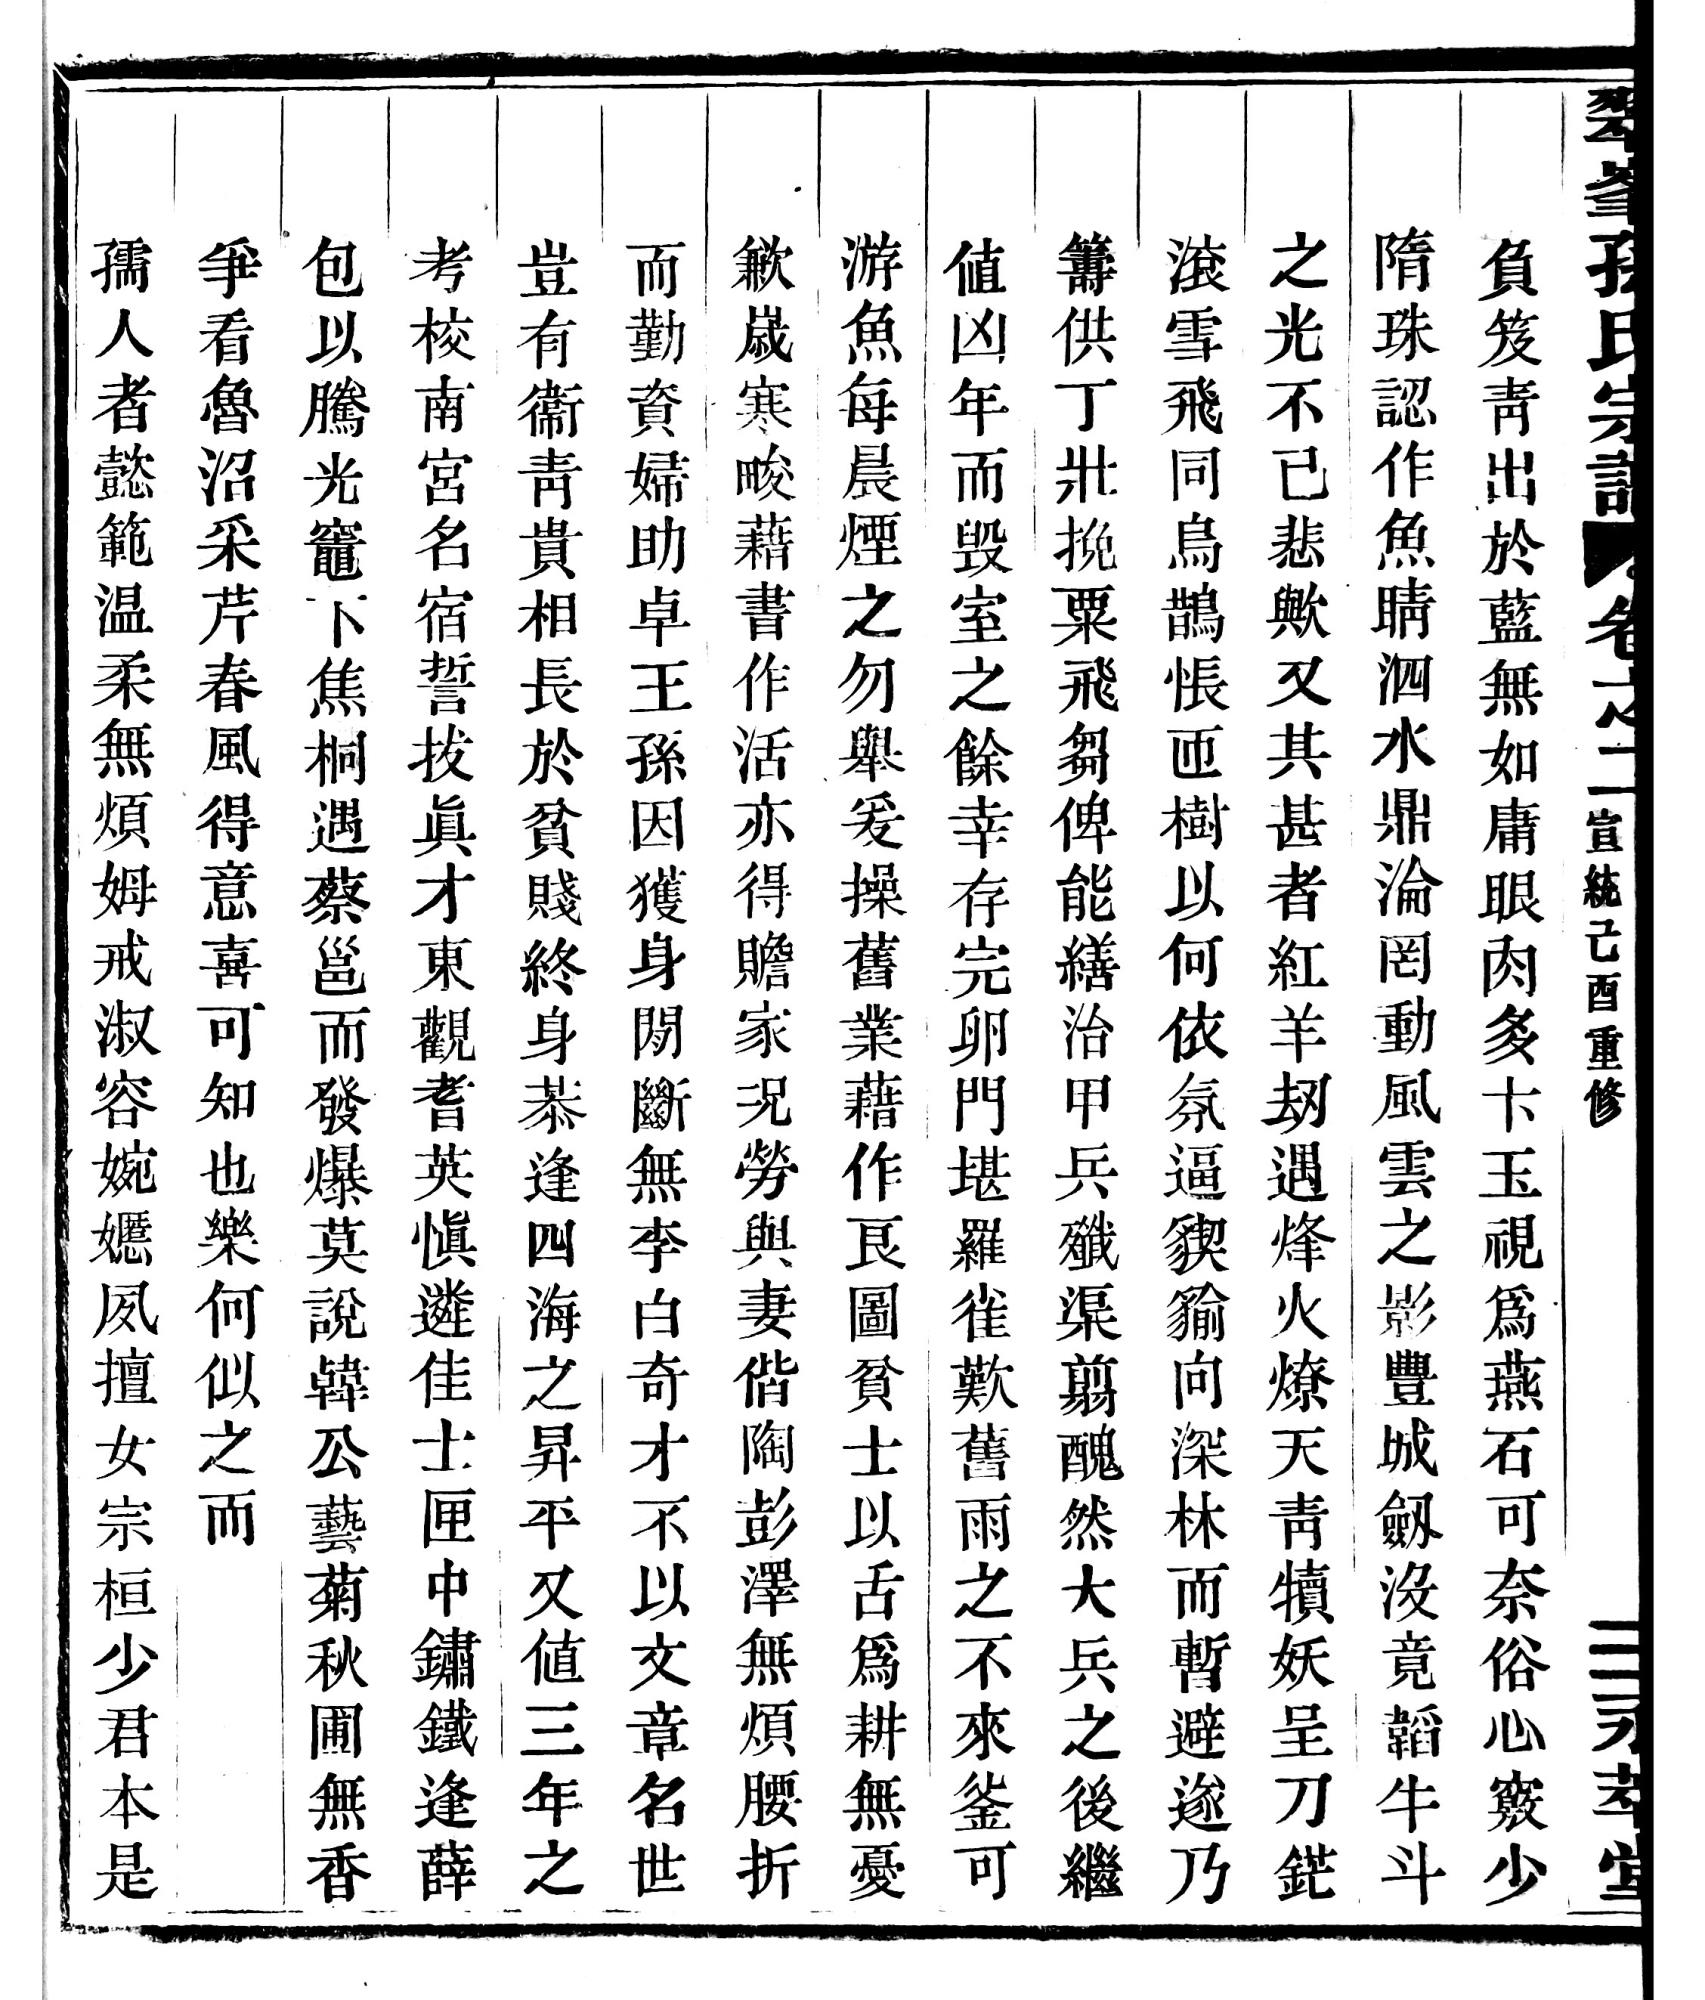 翠峯孫氏宗譜 卷之二 宣統己酉重修 三 永萃堂
負笈靑出於藍無如庸眼肉多卞玉視爲燕石可奈俗心竅少
隋珠認作魚睛泗水鼎淪罔動風雲之影豐城劔沒竟韜牛斗
之光不已悲歟又其甚者紅羊刼遇烽火燎天靑犢妖呈刀鋩
滾雪飛同烏鵲悵匝樹以何依氛逼貏貐向深林而暫避遂乃
籌供丁壯挽粟飛芻俾能繕治甲兵殲渠翦醜然大兵之後繼
値凶年而毀室之餘幸存完卵門堪羅雀歎舊雨之不來釜可
游魚每晨煙之勿舉爰操舊業藉作良圖貧士以舌爲耕無憂
歉歲寒畯藉書作活亦得贍家况勞與妻偕陶彭澤無煩腰折
而勤資婦助卓王孫因獲身閒斷無李白奇才不以文章名世
豈有衞靑貴相長於貧賤終身恭逢四海之昇平又値三年之
考校南宮名宿誓拔眞才東觀耆英愼遴佳士匣中鏽鐵逢薛
包以騰光竈下焦桐遇蔡邕而發爆莫說韓公藝菊秋圃無香
爭看魯沼采芹春風得意喜可知也樂何似之而
孺人者懿範温柔無煩姆戒淑容婉嫕夙擅女宗桓少君本是